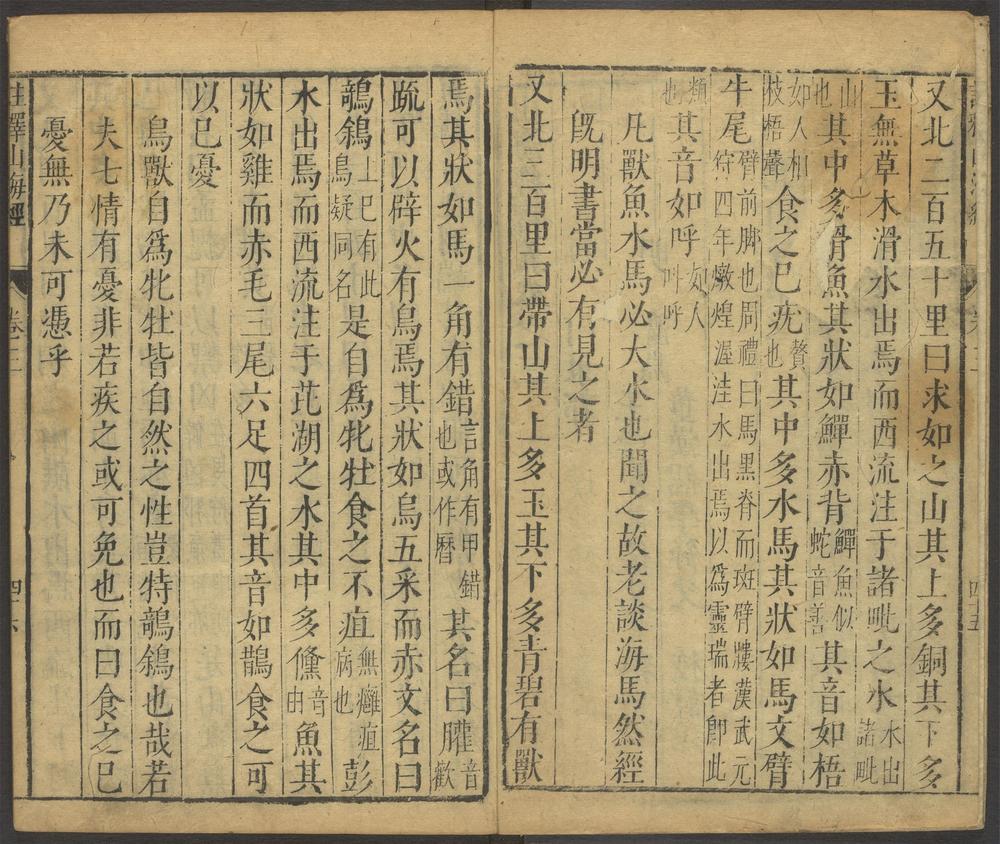 又北二百五十里曰求如之山其上多銅其下多
玉無草木滑水出焉而西流注于諸毗之水水出諸毗
山也其中多滑魚其狀如鱓赤背鱓魚似蛇音善其音如梧
如人相枝梧聲食之已疣贅也其中多水馬其狀如馬文臂
牛尾臂前脚也周禮曰馬黑脊而斑臂䐫漢武元狩四年燉煌渥洼水出焉以為靈瑞者即此
類也其音如呼如人叫呼
凡獸魚水馬必大水也聞之故老談海馬然經
旣明書當必有見之者
又北三百里曰帶山其上多玉其下多青碧有獸
焉其狀如馬一角有錯言角有甲錯也或作厝其名曰䑏音歡
疏可以辟火有鳥焉其狀如烏五采而赤文名曰
鵸鵌上已有此鳥疑同名是自爲牝牡食之不疽無癰疽病也彭
水出焉而西流注于芘湖之水其中多儵音由魚其
狀如雞而赤毛三尾六足四首其音如鵲食之可
以已憂
鳥獸自爲牝牡皆自然之性豈特鵸鵌也哉若
夫七情有憂非若疾之或可免也而曰食之已
憂無乃未可憑乎
註釋山海經
卷三
四十六